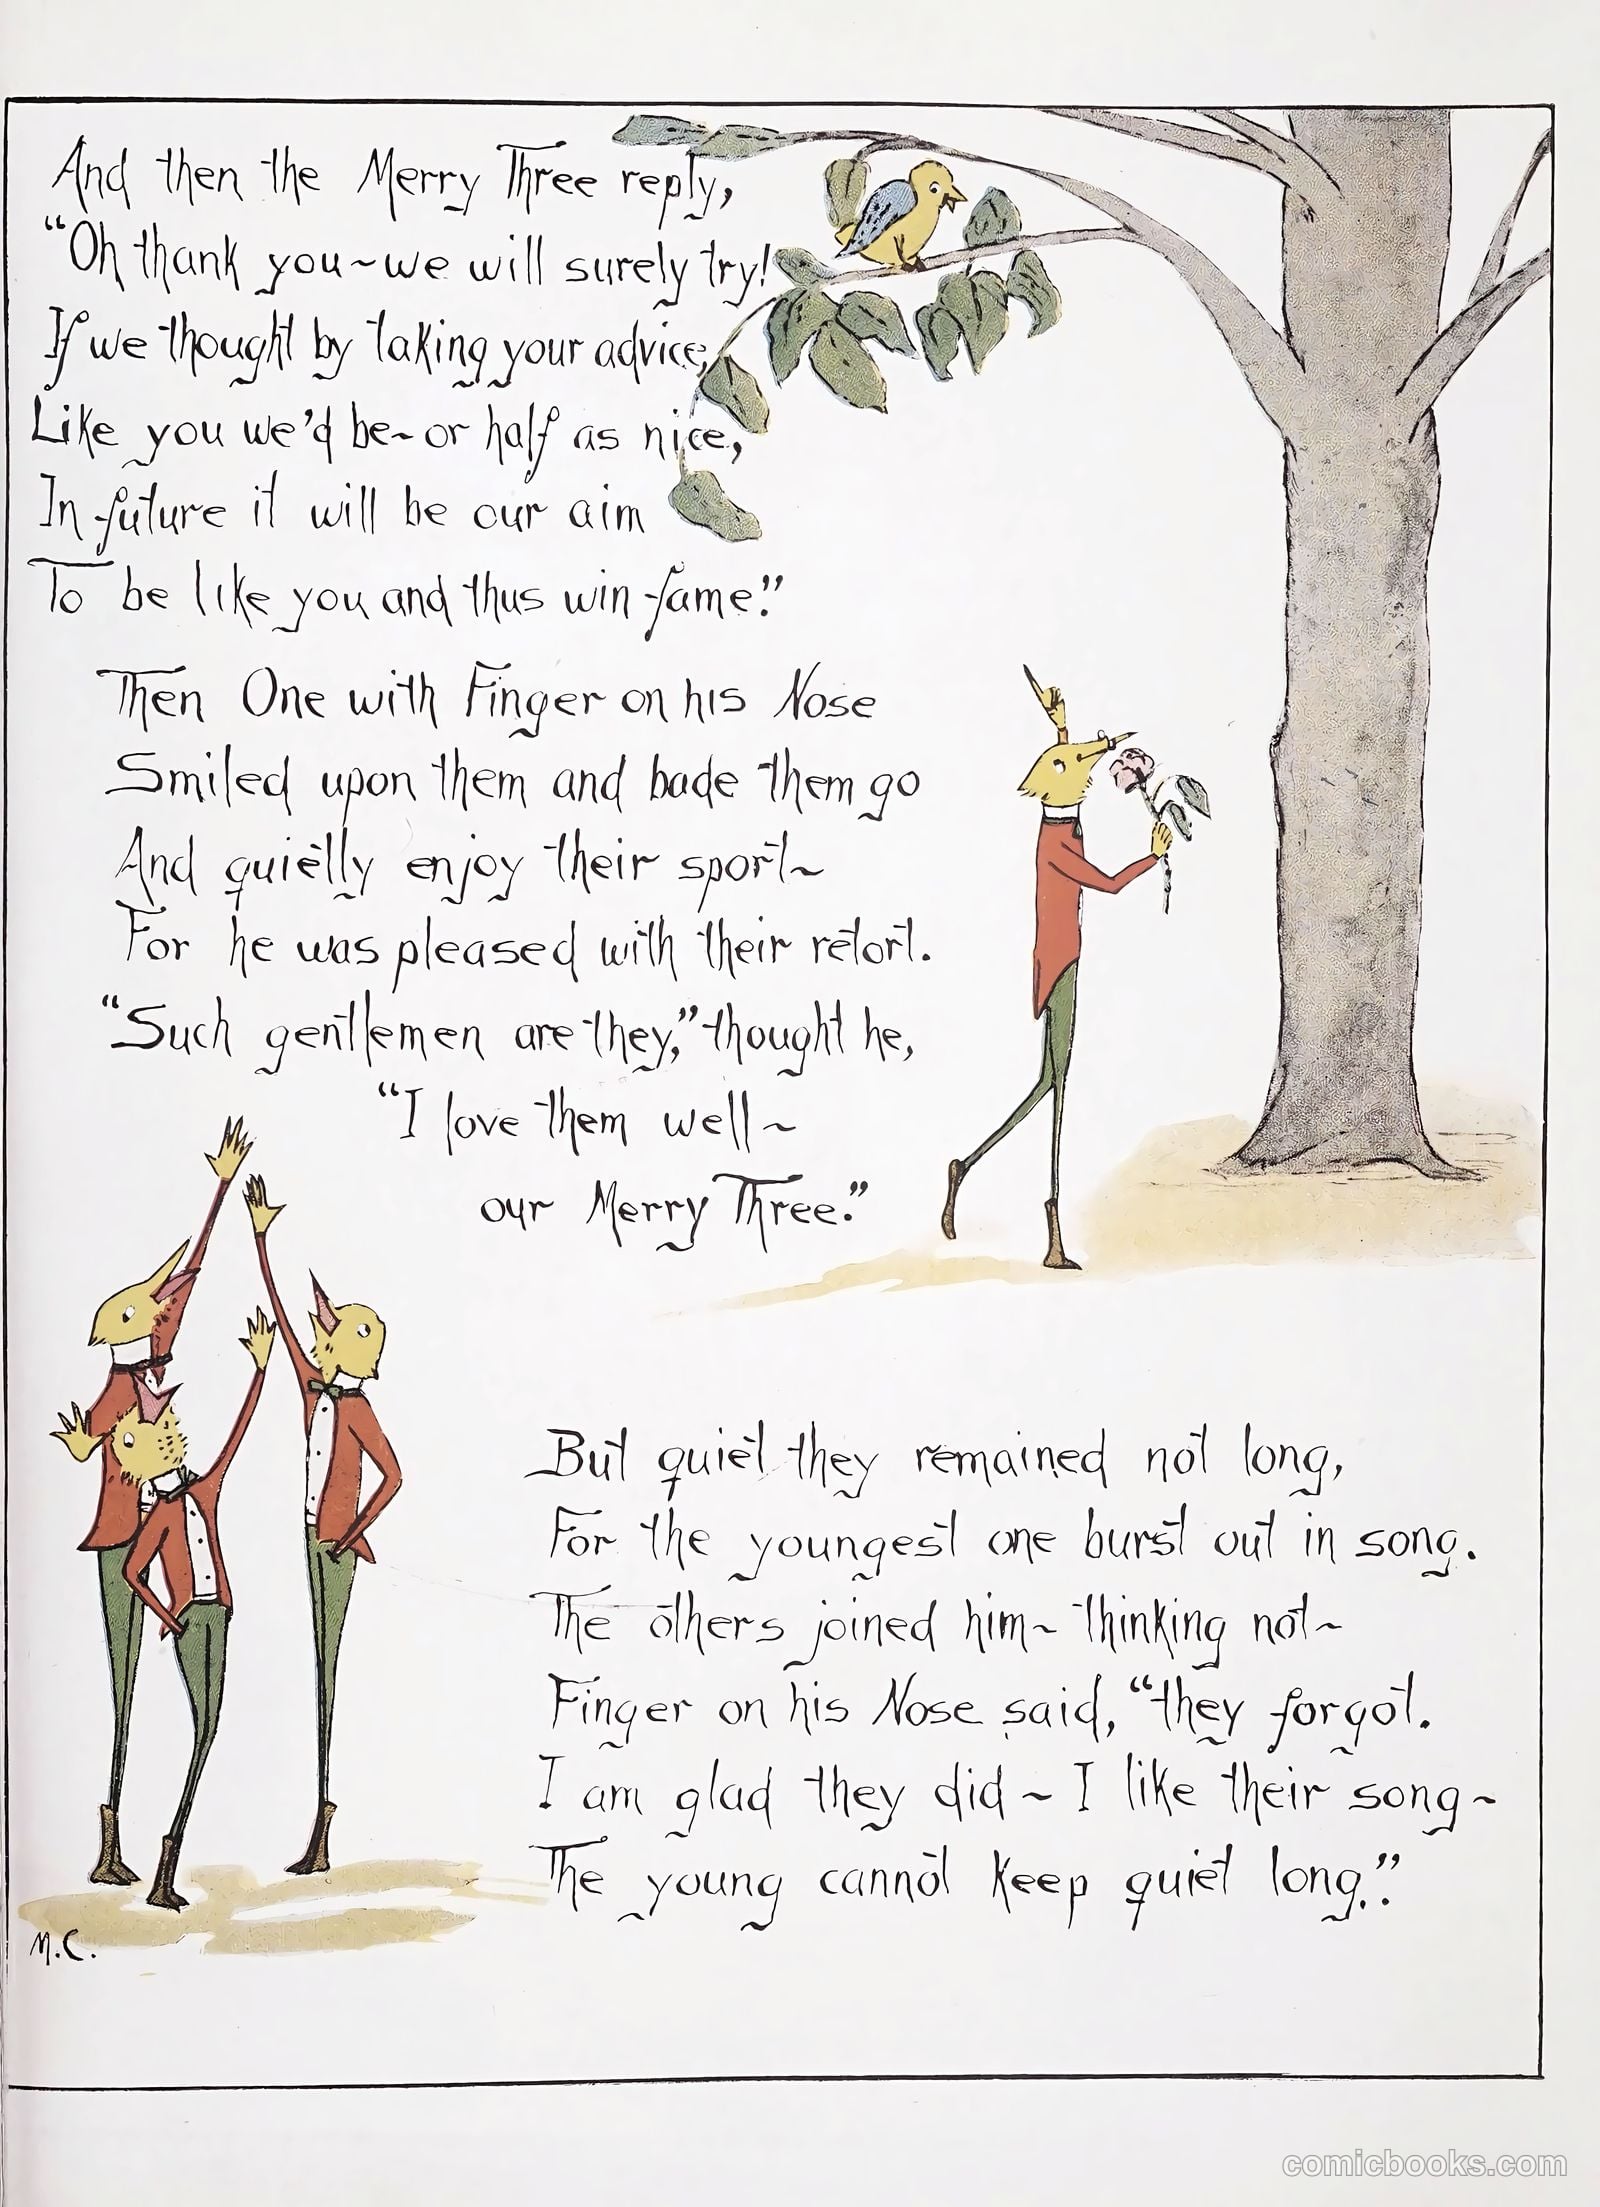 And then the Merry Three reply,
"Oh thank you~we will surely try!
If we thought by taking your advice,
Like you we'd be~or half as nice,
In future it will be our aim
To be like you and thus win fame."
Then One with Finger on his Nose
Smiled upon them and bade them go
And quietly enjoy their sport~
For he was pleased with their retort.
"Such gentlemen are they," thought he,
"I love them well~
our Merry Three."
But quiet they remained not long,
For the youngest one burst out in song.
The others joined him~ thinking not~
Finger on his Nose said, "they forgot.
I am glad they did~I like their song~
The young cannot keep quiet long."
M.C.
comicbooks.com